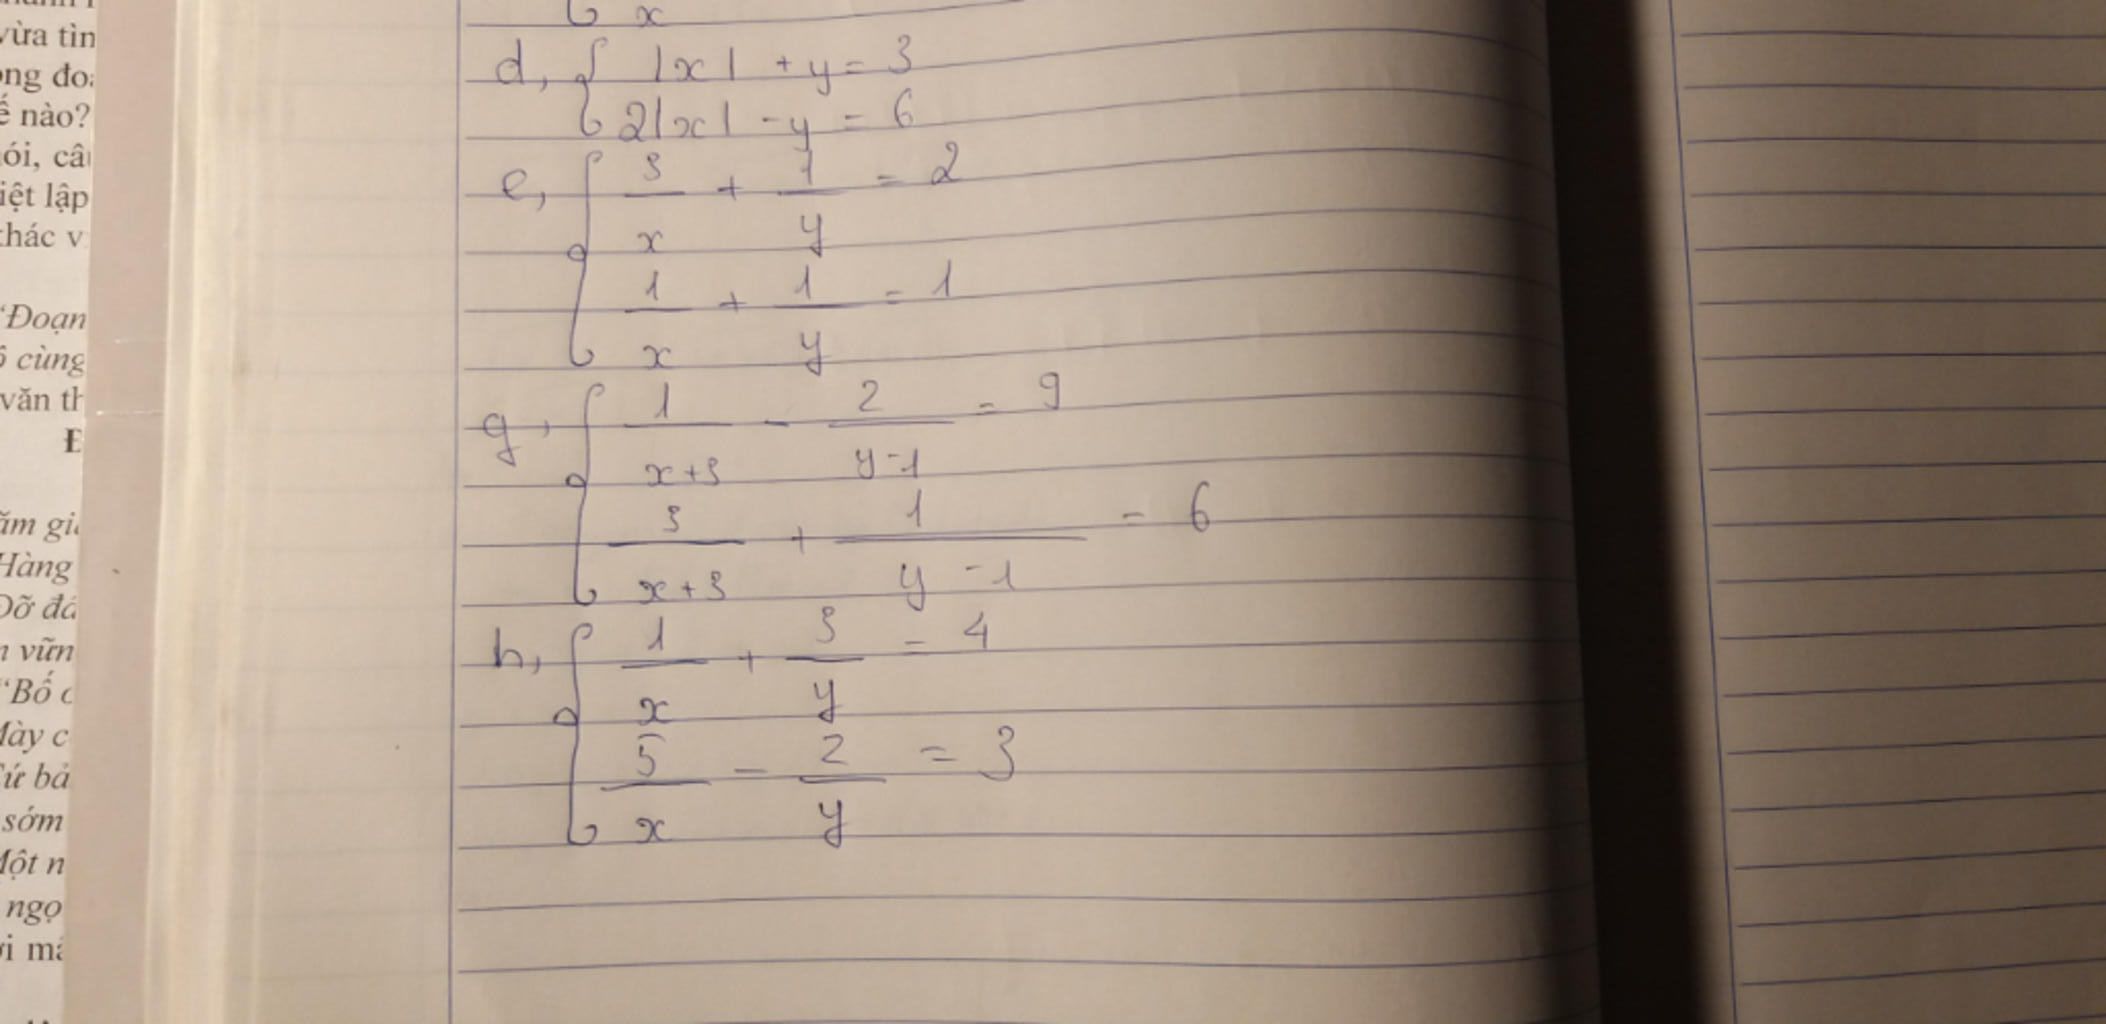 vừa tìn
ế nào?
ói, câ
iệt lập
thác v
"Đoạn
cùng
văn th
Đ
Hàng
Đỡ đá
vữn
"Bố c
bả
sớm
ngọ
x
d, { |x| + y = 3
2|x| - y = 6
e, { 3/x + 1/y = 2
1/x + 1/y = 1
g, { 1/(x+3) - 2/(y-1) = 9
3/(x+3) + 1/(y-1) = 6
h, { 1/x + 3/y = 4
5/x - 2/y = 3